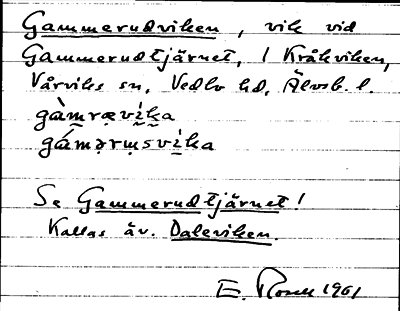 Gammerudviken, vik vid
Gammerudtjärnet, / Kråkviken,
Vårviks sn, Vedbo hd, Älvsb. l.
gàmrævìka
gámərmsvìka
Se Gammerudtjärnet!
Kallas äv. Daleviken.
E. Rosell 1961